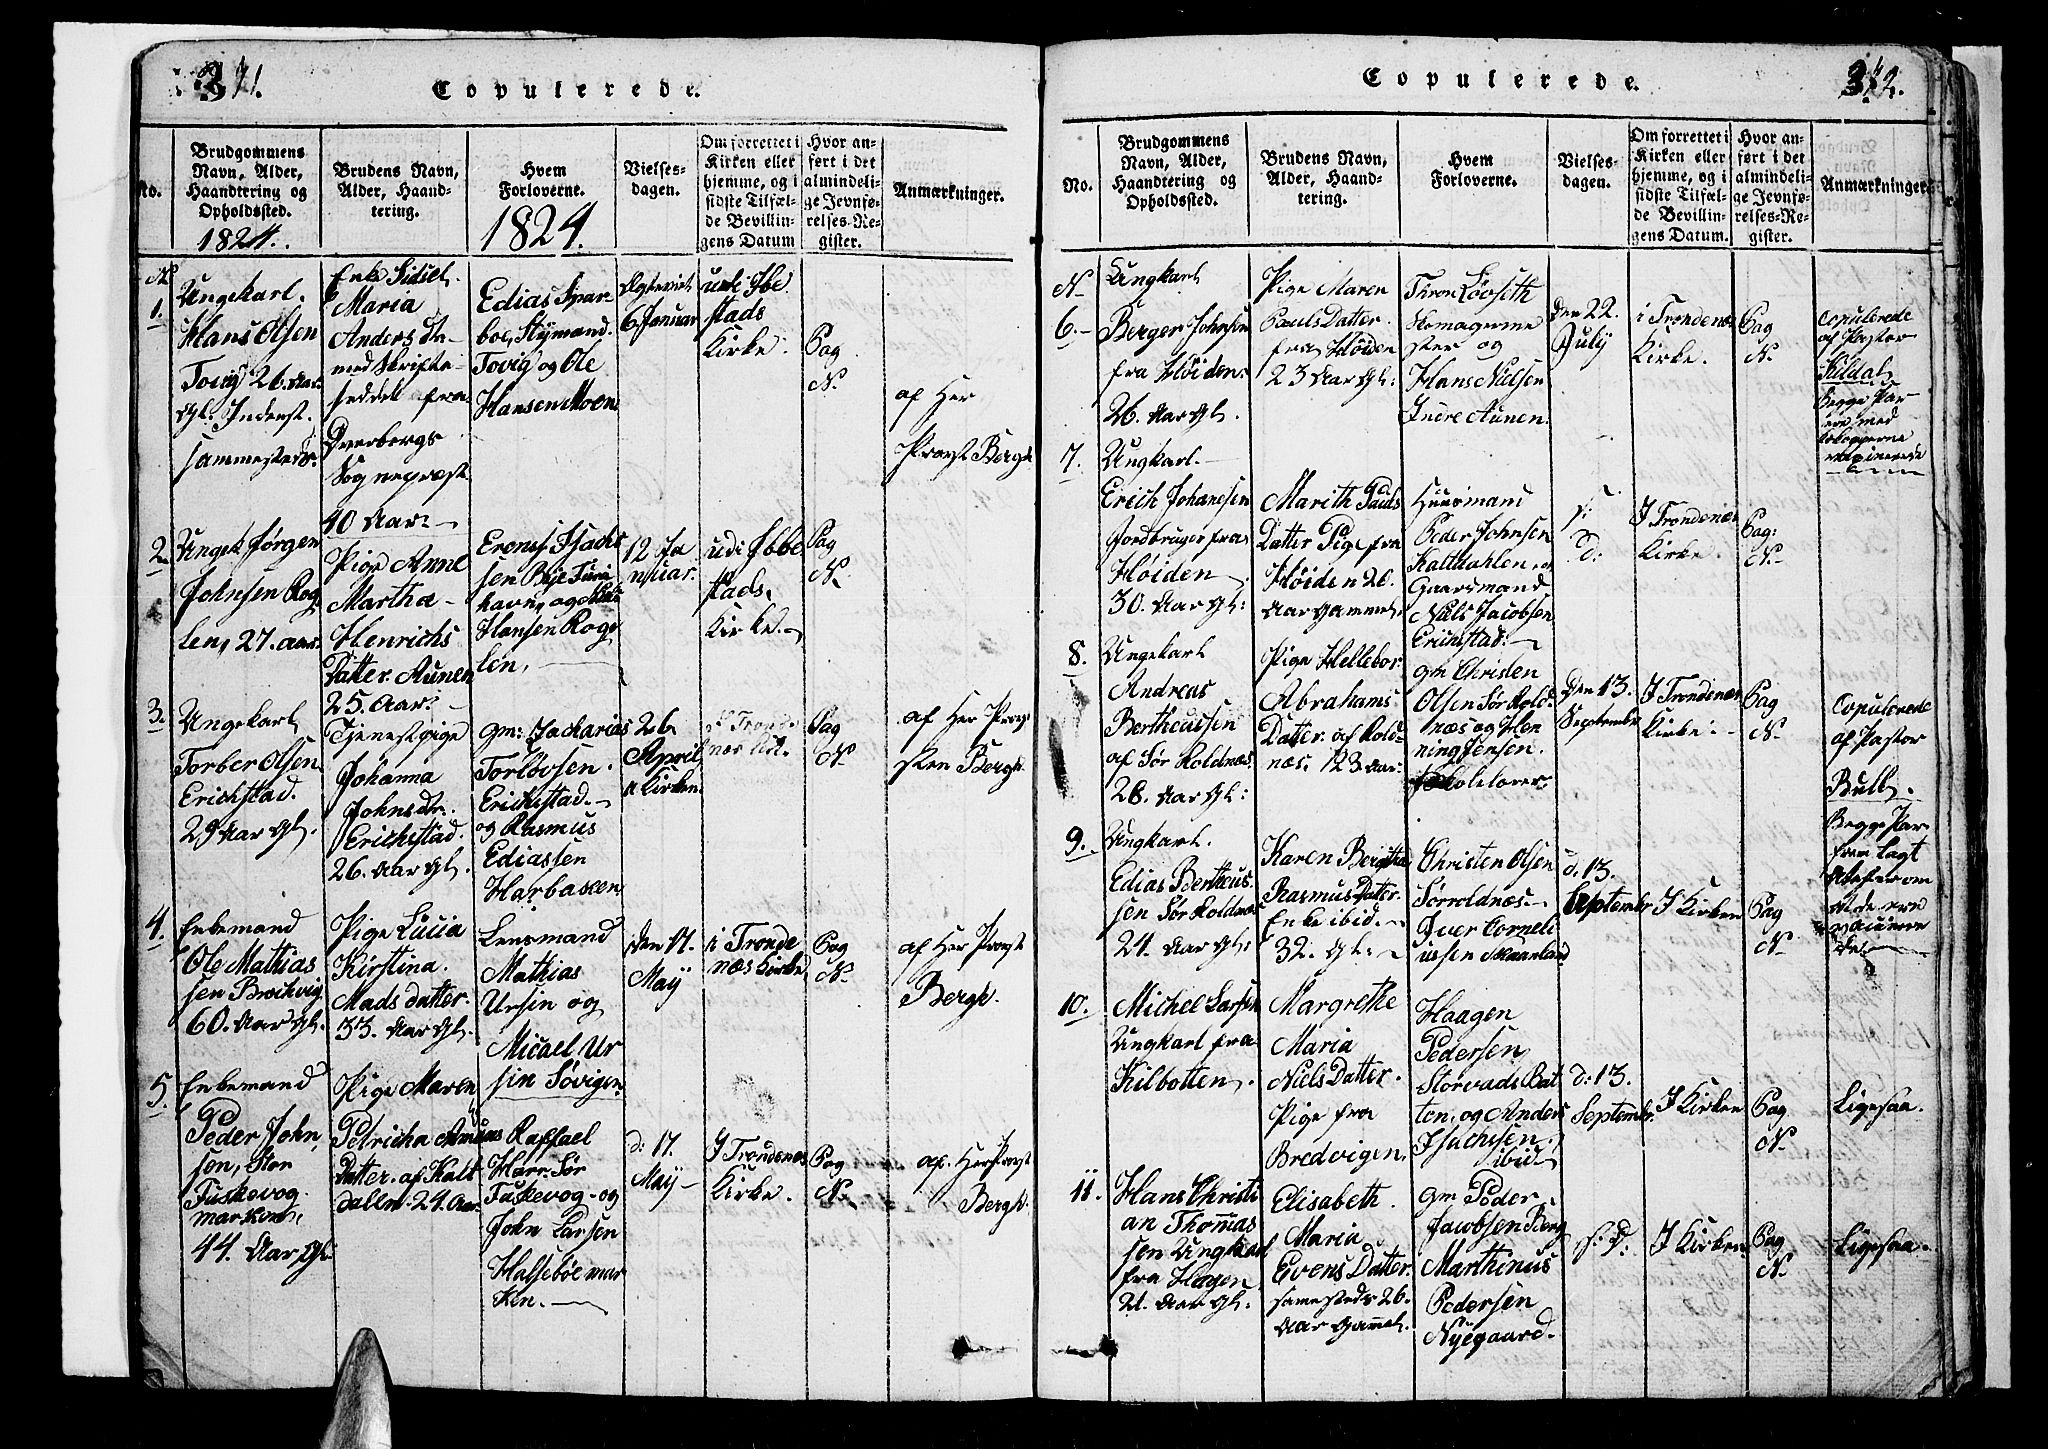 371.
Copulerede.
No.
Brudgommens
Navn, Alder,
Haandtering og
Opholdssted.
1824.
Brudens Navn,
Alder, Haand-
tering.
Hvem
Forloverne.
1824.
Vielses-
dagen.
Om forrettet i
Kirken eller
hjemme, og i
sidste Tilfæl-
de Bevillin-
gens Datum
Hvor an-
ført i det
almindeli-
ge Jevnfø-
relses-Re-
gister.
Anmærkninger.
N
1.
Ungekarl.
Hans Olsen
Tovig 26. Aar
Gl. Inderst.
sammesteds.
Enke Sidsel
Maria
Anders Da-
med Skrifte-
seddel fra
Sognepræst
40 Aar
Edias Spar
boe, Stÿmand.
Tovig og Ole
Hansen Moen
6. Januar
udi Ibe
stads
Kirke.
Pag
N.
af Her
Provst Bergh
2.
Ungek Jørgen
Johnsen Rog
len, 27. aar.
Pige Anne
Martha
Henrichs
Datter. Aunen
25. Aar.
sen
havn, og
Hansen Rog
len,
12 Ja
nuar.
udi Ibbe
stads,
Kirke.
Pag
N.
3.
Ungekarl
Torber Olsen
Erichstad.
29 Aar Gl.
Tjenestpige
Johanna
Johnsdr.
Erichstad.
26. Aar Gl.
gm: Zacharias
Torlövsen.
Erichstad.
og Rasmus
Ediassen
26
April
Kirken.
Pag
N.
af Her Prov
sten Bergh.
4.
Enkemand
Ole Mathias
sen Brokvig
60. Aar Gl.
Pige Lucia
Kirstina.
Mads datter.
33. Aar Gl.
Lensmand
Mathias
Ursin og
Micael Ur
sin Sövigen.
den 17.
Maÿ
i Tronde
næs Kirke,
Pag
N.
af Her Provst
Bergh.
5.
Enkemand
Peder John
sen, Stor
Fuskevog
marken,
44. Aar Gl
Pige Maren
Petricha
Datter. af Kalt
dallen. 24. Aar
Raffael
Harr. Sør
Fuskevog og
John Larsen
Halsebøe mar
ken.
d: 17.
Maÿ
I Trondenæs
Kirke.
Pag
N.
af. Her Provst
Bergh.
372.
Copulerede.
No.
Brudgommens
Navn, Alder,
Haandtering og
Opholdssted.
Brudens Navn,
Alder, Haand-
tering.
Hvem
Forloverne.
Vielses-
dagen.
Om forrettet i
Kirken eller
hjemme, og i
sidste Tilfæl-
de Bevillin-
gens Datum.
Hvor an-
ført i det
almindeli-
ge Jevnfø-
relses-Re-
gister.
Anmærkninger.
N
6.
Ungkarl
Berger Johnsen
fra Høiden.
26. Aar Gl.
Pige Maren
Pauls Datter.
fra Høiden
23 Aar Gl:
Thron Lövseth
ster og
Hans Nielsen
Indre Aunen.
Den 22.
Julÿ
i Trondenæs
Kirke.
Pag
N.
Copulerede
af Pastor
Kildal
Begge Par
ere med
Kokopperne
vaxinerede
7.
Ungkarl.
Erich Johansen
Jordbruger fra
Høiden
30. Aar Gl:
Marith Pauls
Datter Pige fra
Høiden 20.
Aar gammel.
Huusmand
Peder Johnsen
Kaltdahlen, og
Gaarsmand
Niels Jacobsen
s:
d:
I Trondenæs
Kirke.
Pag:
N.
8.
Ungekarl
Andreas
Bertheussen
af Sør Roldnæs.
26. Aar Gl:
Pige Hellebor
Abrahams
Datter. af Rold
næs. 23 aar.
gm Christen
Olsen Sør Rold-
næs og Hen
ning Jensen.
Den 13.
September
I Trondenæs
Kirke.
Pag
N.
Copulerede
af Pastor
Bull.
9.
Ungkarl.
Edias Bertheus-
sen Sør Roldnæs
24. Aar Gl:
Karen Bergitha
Rasmus Datter.
Enke ibid.
32. Gl:
Christen Olsen
Sørroldnæs.
Iver Corneli
ussen Skaanland
d. 13.
September
I Kirken
Pag
N.
Begge Par
10.
Michel Larsen
Ungkarl fra
Kilbotten.
Margrethe
Maria
Niels Datter.
Pige fra
Bredvigen,
Haagen
Pedersen
Storvads Bat
ten, og Anders
Isachsen,
ibid
d: 13.
September.
I Kirken
Pag
N.
Ligesaa.
11.
Hans Christi
an Thommas
sen Ungkarl
fra Hagen
21. Aar Gl:
Elisabeth.
Maria
Evens Datter.
samesteds 26.
Aar gammel.
gm Peder
Jacobsen Berg
Marthinus
Pedersen
Nyegaard.
s: d:
I Kirken
Pag
N.
Ligesaa.